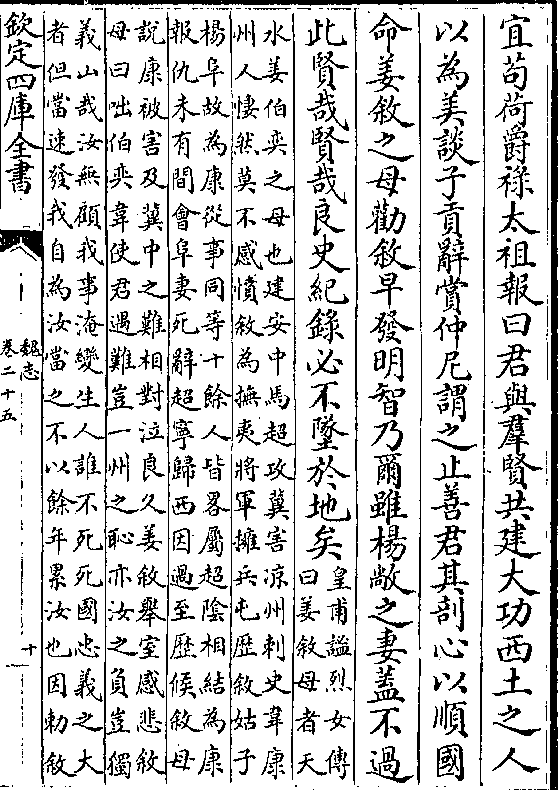 宜苟荷爵祿太祖報曰君與羣賢共建大功西土之人
以為美談子貢辭賞仲尼謂之止善君其剖心以順國
命姜敘之母勸敘早發明智乃爾雖楊敞之妻蓋不過
此賢哉賢哉良史紀錄必不墜於地矣
皇甫謐烈女傳
曰姜敘母者天
水姜伯奕之母也建安中馬超攻冀害凉州刺史韋康
州人悽然莫不感憤敘為撫夷將軍擁兵屯歷敘姑子
楊阜故為康從事同等十餘人皆畧屬超陰相結為康
報仇未有間會阜妻死辭超寧歸西因過至歷候敘母
說康被害及冀中之難相對泣良久姜敘舉室感悲敘
母曰咄伯奕韋使君遇難豈一州之恥亦汝之負豈獨
義山哉汝無顧我事淹變生人誰不死死國忠義之大
者但當速發我自為汝當之不以餘年累汝也因勅敘
欽定四庫全書
魏志
卷二十五
十